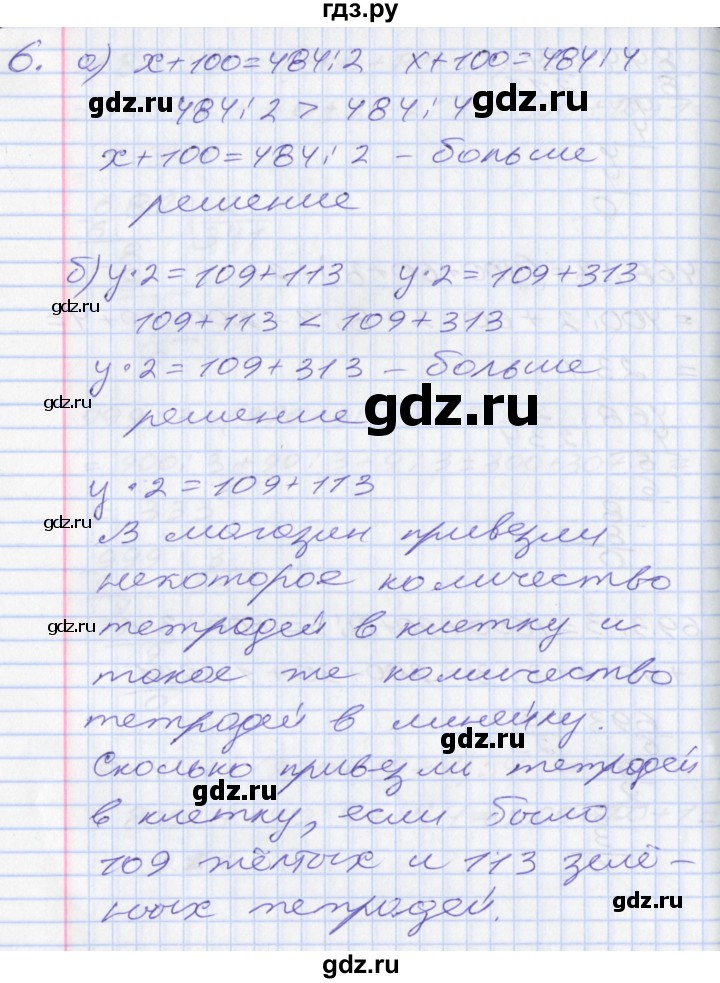 гдз.ру
6. а) x+100=484:2 x+100=484:4
484:2 > 484:4
gdz.ru gdz.ru
x+100=484:2 – больше
решение
б) y·2=109+113 y·2=109+313
gdz.ru
109+113 < 109+313
y·2=109+313 – больше
gdz.ru
решение
gdz.ru
y·2=109+113
gdz.ru
В магазин привезли
некоторое количество
gdz.ru
тетрадей в клетку и
такое же количество
тетрадей в линейку.
gdz.ru
Сколько привезли тетрадей
gdz.ru
в клетку, если было
109 жёлтых и 113 зелё-
ных тетрадей.
gdz.ru
gdz.ru